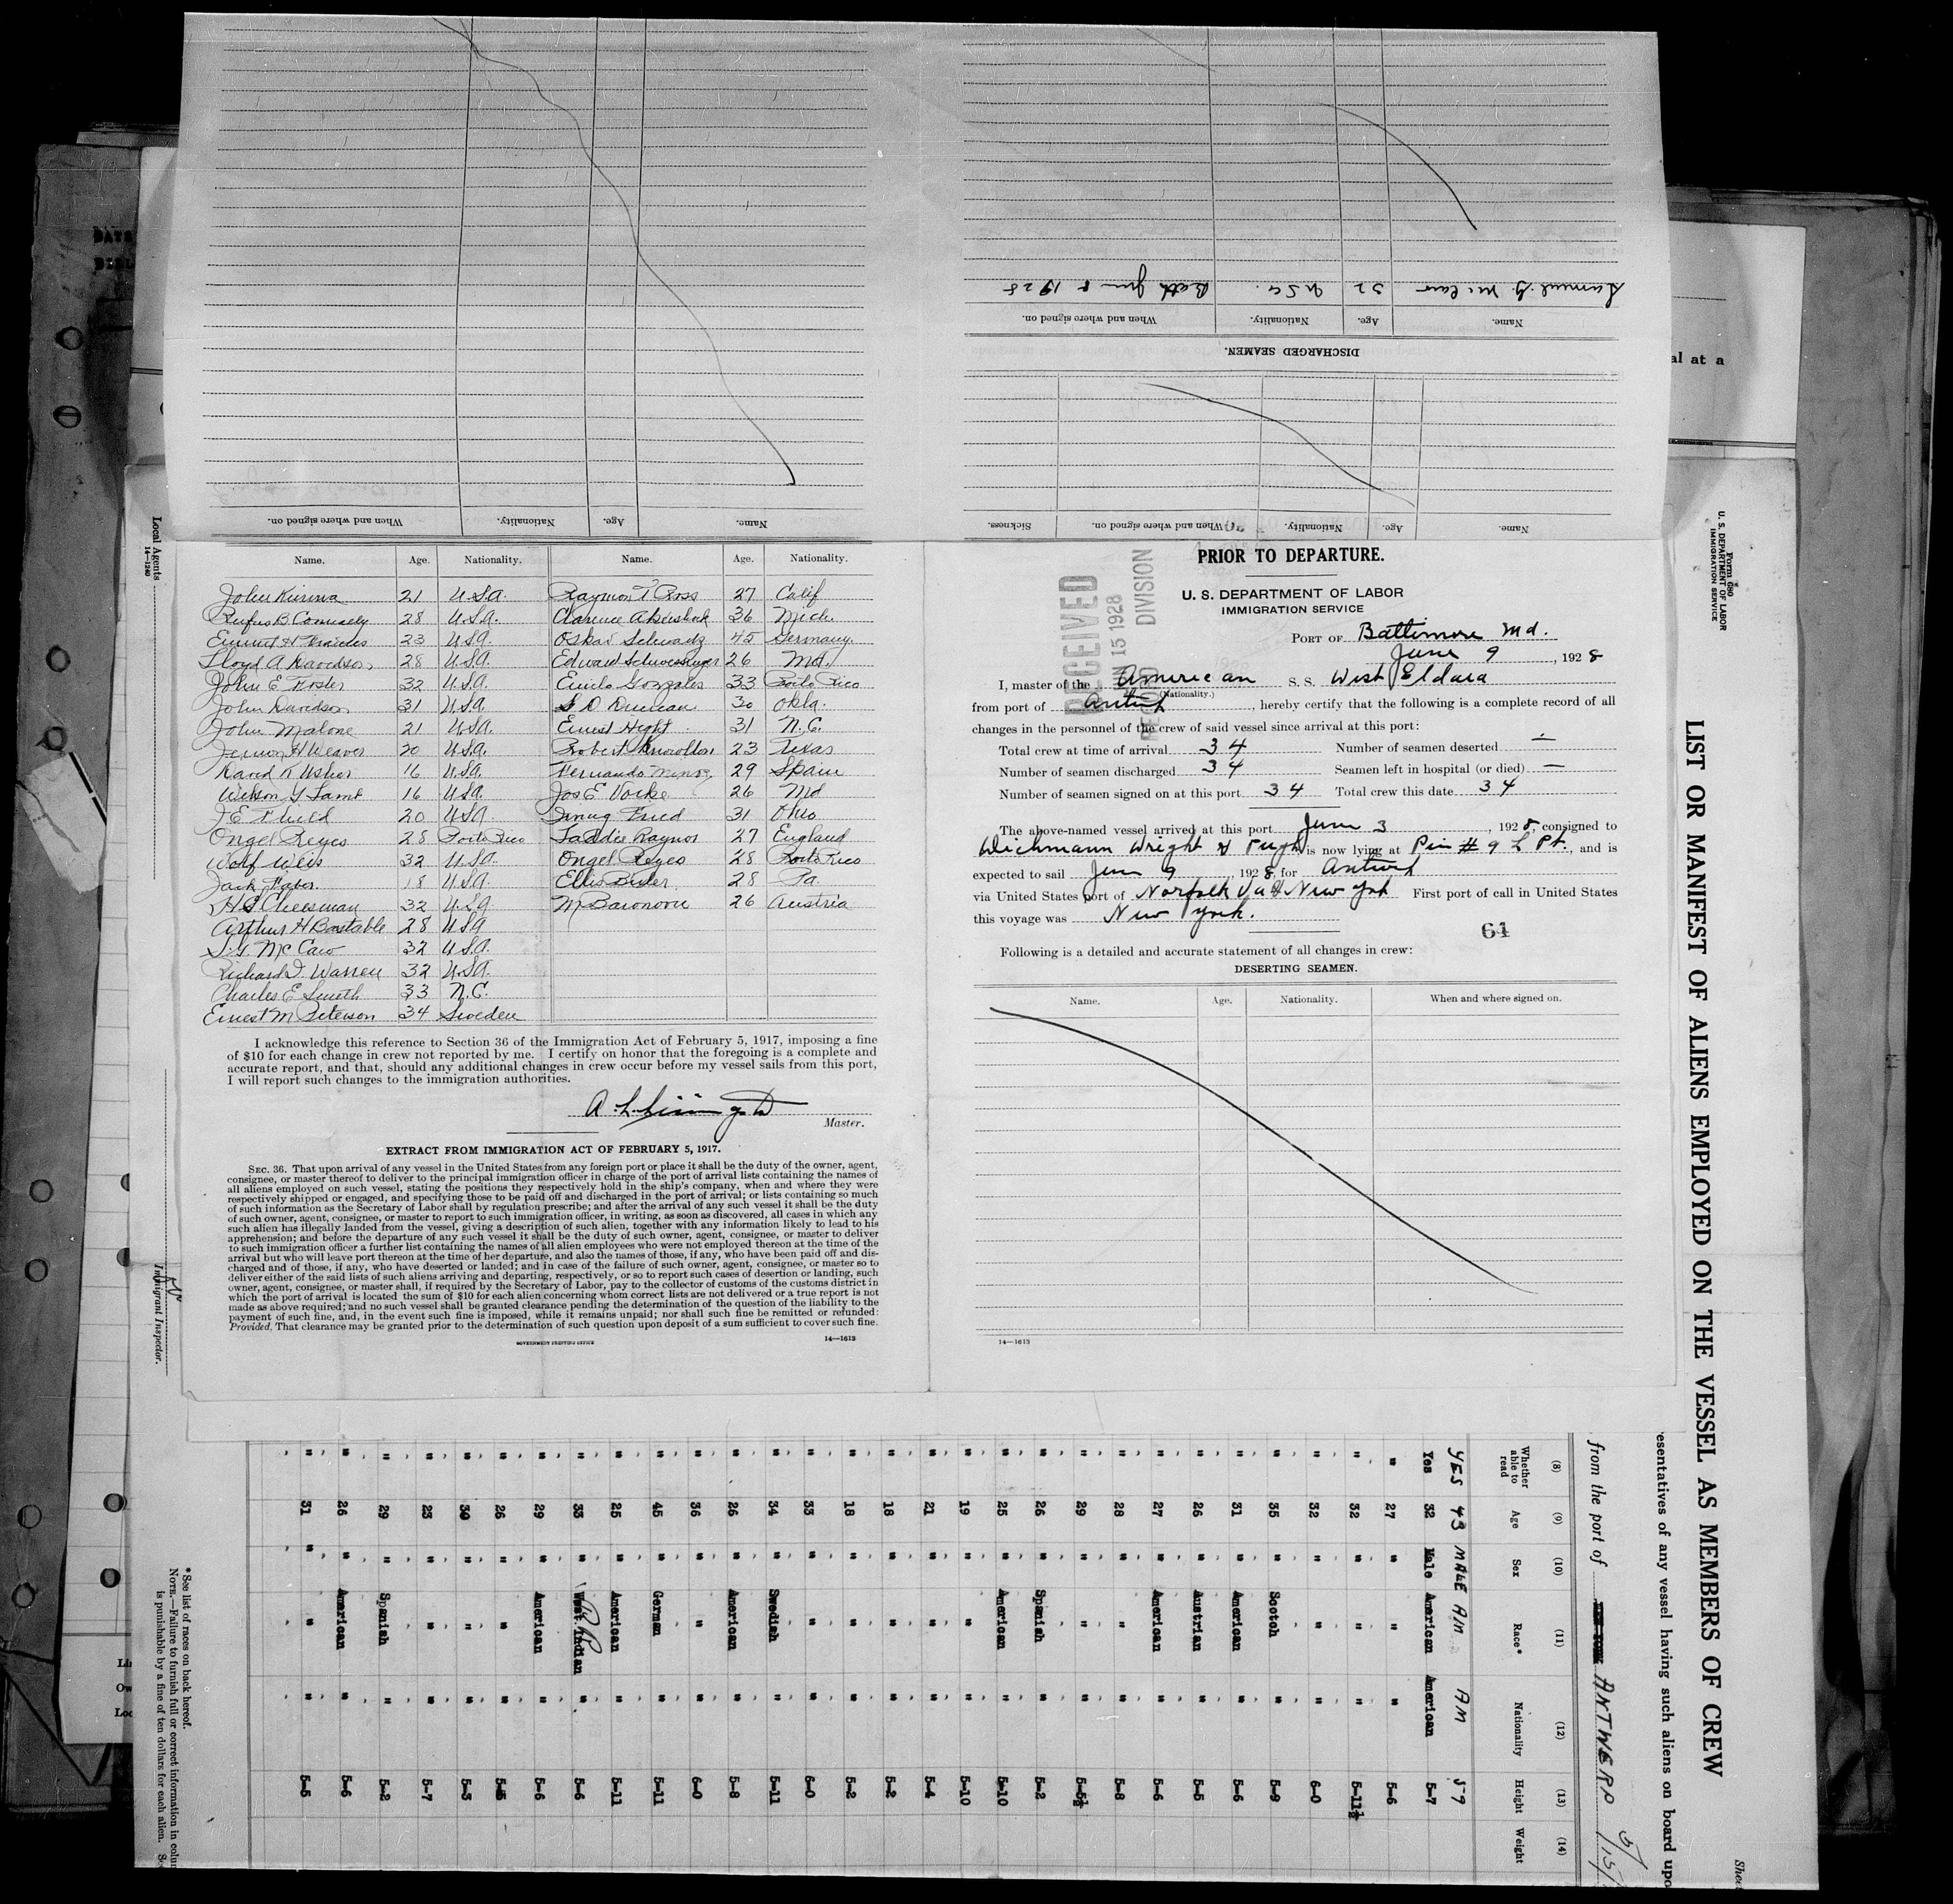 Name. Age. Nationality. When and where signed on.
Name. Age. Nationality. When and where signed on. Sickness.
DISCHARGED SEAMEN.
Name. Age. Nationality. When and where signed on.
Samuel G. McCaw 32 USA. Balto Jun 8 1928
Name. Age. Nationality. Name. Age. Nationality.
John 21 U.S.A. Raymon T. Ross 27 Calif
Rufus B 28 U.S.A. Clarence 36 Mich.
Emmet H Francies 23 U.S.A. Oskar Schwartz 45 Germany.
Lloyd A Davidson 28 U.S.A. Edward 26 Md.
John E Foster 32 U.S.A. Emilo Gonzales 33 Porto Rico
John Davidson 31 U.S.A. D Duncan 30 Okla.
John Malone 21 U.S.A. Ernest Hight 31 N.C.
H Weaver 20 U.S.A. Robert Knowlton 23 Texas
David K Usher 16 U.S.A. Fernando 29 Spain
16 U.S.A. Jos E 26 Md
20 U.S.A. Irving Fried 31 Ohio
Ongel Reyes 28 Porto Rico Taddie Raynor 27 England
Wolf Weiss 32 U.S.A. Ongel Reyes 28 Porto Rico
Jack 18 U.S.A. Ellis 28 Pa.
Cheesman 32 U.S.A. M 26 Austria
Arthur H 28 USA
S.G. McCaw 32 U.S.A.
Richard Warren 32 U.S.A.
Charles E Smith 33 N.C.
Ernest M Peterson 34 Sweden
I acknowledge this reference to Section 36 of the Immigration Act of February 5, 1917, imposing a fine
of $10 for each change in crew not reported by me. I certify on honor that the foregoing is a complete and
accurate report, and that, should any additional changes in crew occur before my vessel sails from this port,
I will report such changes to the immigration authorities.
Master.
EXTRACT FROM IMMIGRATION ACT OF FEBRUARY 5, 1917.
SEC. 36. That upon arrival of any vessel in the United States from any foreign port or place it shall be the duty of the owner, agent,
consignee, or master thereof to deliver to the principal immigration officer in charge of the port of arrival lists containing the names of
all aliens employed on such vessel, stating the positions they respectively hold in the ship's company, when and where they were
respectively shipped or engaged, and specifying those to be paid off and discharged in the port of arrival; or lists containing so much
of such information as the Secretary of Labor shall by regulation prescribe; and after the arrival of any such vessel it shall be the duty
of such owner, agent, consignee, or master to report to such immigration officer, in writing, as soon as discovered, all cases in which any
such alien has illegally landed from the vessel, giving a description of such alien, together with any information likely to lead to his
apprehension; and before the departure of any such vessel it shall be the duty of such owner, agent, consignee, or master to deliver
to such immigration officer a further list containing the names of all alien employees who were not employed thereon at the time of the
arrival but who will leave port thereon at the time of her departure, and also the names of those, if any, who have been paid off and dis-
charged and of those, if any, who have deserted or landed; and in case of the failure of such owner, agent, consignee, or master so to
deliver either of the said lists of such aliens arriving and departing, respectively, or so to report such cases of desertion or landing, such
owner, agent, consignee, or master shall, if required by the Secretary of Labor, pay to the collector of customs of the customs district in
which the port of arrival is located the sum of $10 for each alien concerning whom correct lists are not delivered or a true report is not
made as above required; and no such vessel shall be granted clearance pending the determination of the question of the liability to the
payment of such fine, and, in the event such fine is imposed, while it remains unpaid; nor shall such fine be remitted or refunded:
Provided, That clearance may be granted prior to the determination of such question upon deposit of a sum sufficient to cover such fine.
GOVERNMENT PRINTING OFFICE 14—1613
PRIOR TO DEPARTURE.
U. S. DEPARTMENT OF LABOR
IMMIGRATION SERVICE
RECEIVED
JUN 15 1928
RECORD DIVISION
PORT OF Baltimore Md.
June 9, 1928
I, master of the American S. S. West Eldara
(Nationality.)
from port of Antwp, hereby certify that the following is a complete record of all
changes in the personnel of the crew of said vessel since arrival at this port:
Total crew at time of arrival 34 Number of seamen deserted —
Number of seamen discharged 34 Seamen left in hospital (or died) —
Number of seamen signed on at this port 34 Total crew this date 34
The above-named vessel arrived at this port June 3, 1928, consigned to
Dichmann Wright & Pugh, is now lying at Pier # 9 L Pt., and is
expected to sail Jun 9, 1928, for Antwp
via United States port of Norfolk Va & New York First port of call in United States
this voyage was New York.
64
Following is a detailed and accurate statement of all changes in crew:
DESERTING SEAMEN.
Name. Age. Nationality. When and where signed on.
14—1613
Form 680
U. S. DEPARTMENT OF LABOR
IMMIGRATION SERVICE
LIST OR MANIFEST OF ALIENS EMPLOYED ON THE VESSEL AS MEMBERS OF CREW
esentatives of any vessel having such aliens on board upo
from the port of ANTWERP 5/15/
al at a
(8) (9) (10) (11) (12) (13) (14)
Whether able to read Age Sex Race* Nationality Height Weight
YES 43 MALE AM AM 5 9
Yes 32 Male American American 5-7
" 27 " " " 5-6
" 32 " " " 5-11½
" 32 " " " 6-0
" 35 " Scotch " 5-9
" 31 " American " 5-6
" 26 " Austrian " 5-5
" 27 " American " 5-6
" 28 " " " 5-8
" 29 " " " 5-5½
" 26 " Spanish " 5-2
" 25 " American " 5-10
" 19 " " " 5-10
" 21 " " " 5-4
" 18 " " " 5-2
" 18 " " " 5-2
" 33 " " " 6-0
" 34 " Swedish " 5-11
" 26 " American " 5-8
" 36 " " " 6-0
" 45 " German " 5-11
" 25 " American " 5-11
" 33 " West Indian " 5-6
" 29 " American " 5-6
" 26 " " " 5-5
" 30 " " " 5-3
" 23 " " " 5-7
" 29 " Spanish " 5-2
" 26 " American " 5-6
" 31 " " " 5-5
* See list of races on back hereof.
NOTE.—Failure to furnish full or correct information in colu
is punishable by a fine of ten dollars for each alien.
Local Agents
14—1240
Immigrant Inspector.